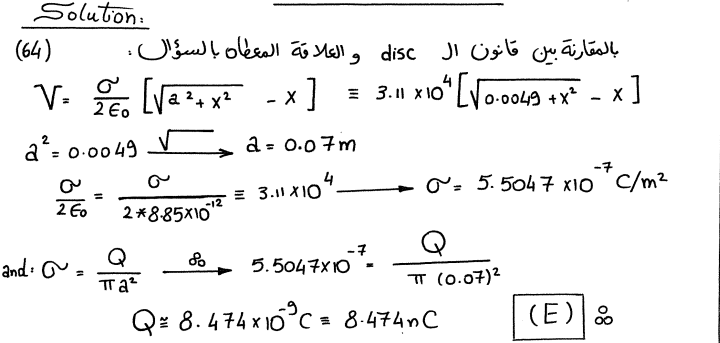 Solution:
(64) بالمقارنة بين قانون ال disc و العلاقة المعطاه بالسؤال :
V = σ/2ε₀ [√(a² + x²) - x] ≡ 3.11 × 10⁴ [√(0.0049 + x²) - x]
a² = 0.0049 √→ a = 0.07 m
σ/2ε₀ = σ/(2*8.85×10⁻¹²) ≡ 3.11 × 10⁴ → σ = 5.5047 × 10⁻⁷ C/m²
and: σ = Q/πa² → 5.5047×10⁻⁷ = Q/(π (0.07)²)
Q ≅ 8.474 × 10⁻⁹ C ≡ 8.474 nC (E)